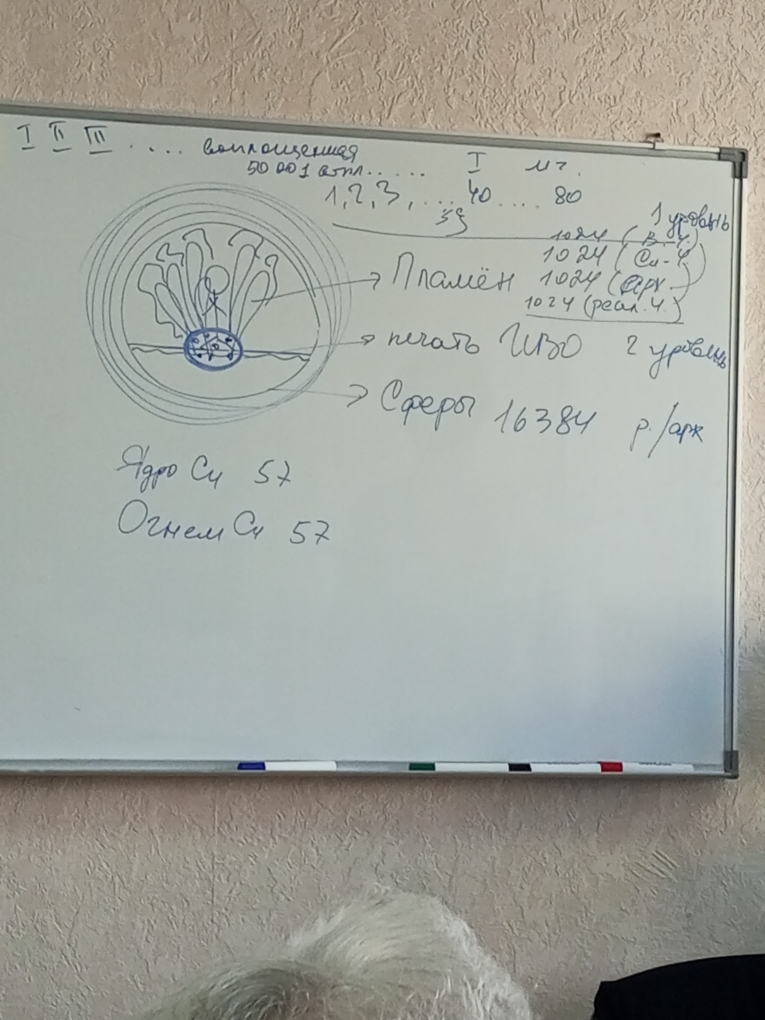 I II III . . . . воплощенная I мг.
50 001 впл......
1, 2, 3, .... 40 .... 80
1 уровень
1024 (В-Ч.)
1024 (Си-Ч.
Пламён 1024 (Арх
1024 (реал. Ч.)
печать ИВО 2 уровень
Сферы 16384 р./арх
Ядро Си 57
Огнем Си 57